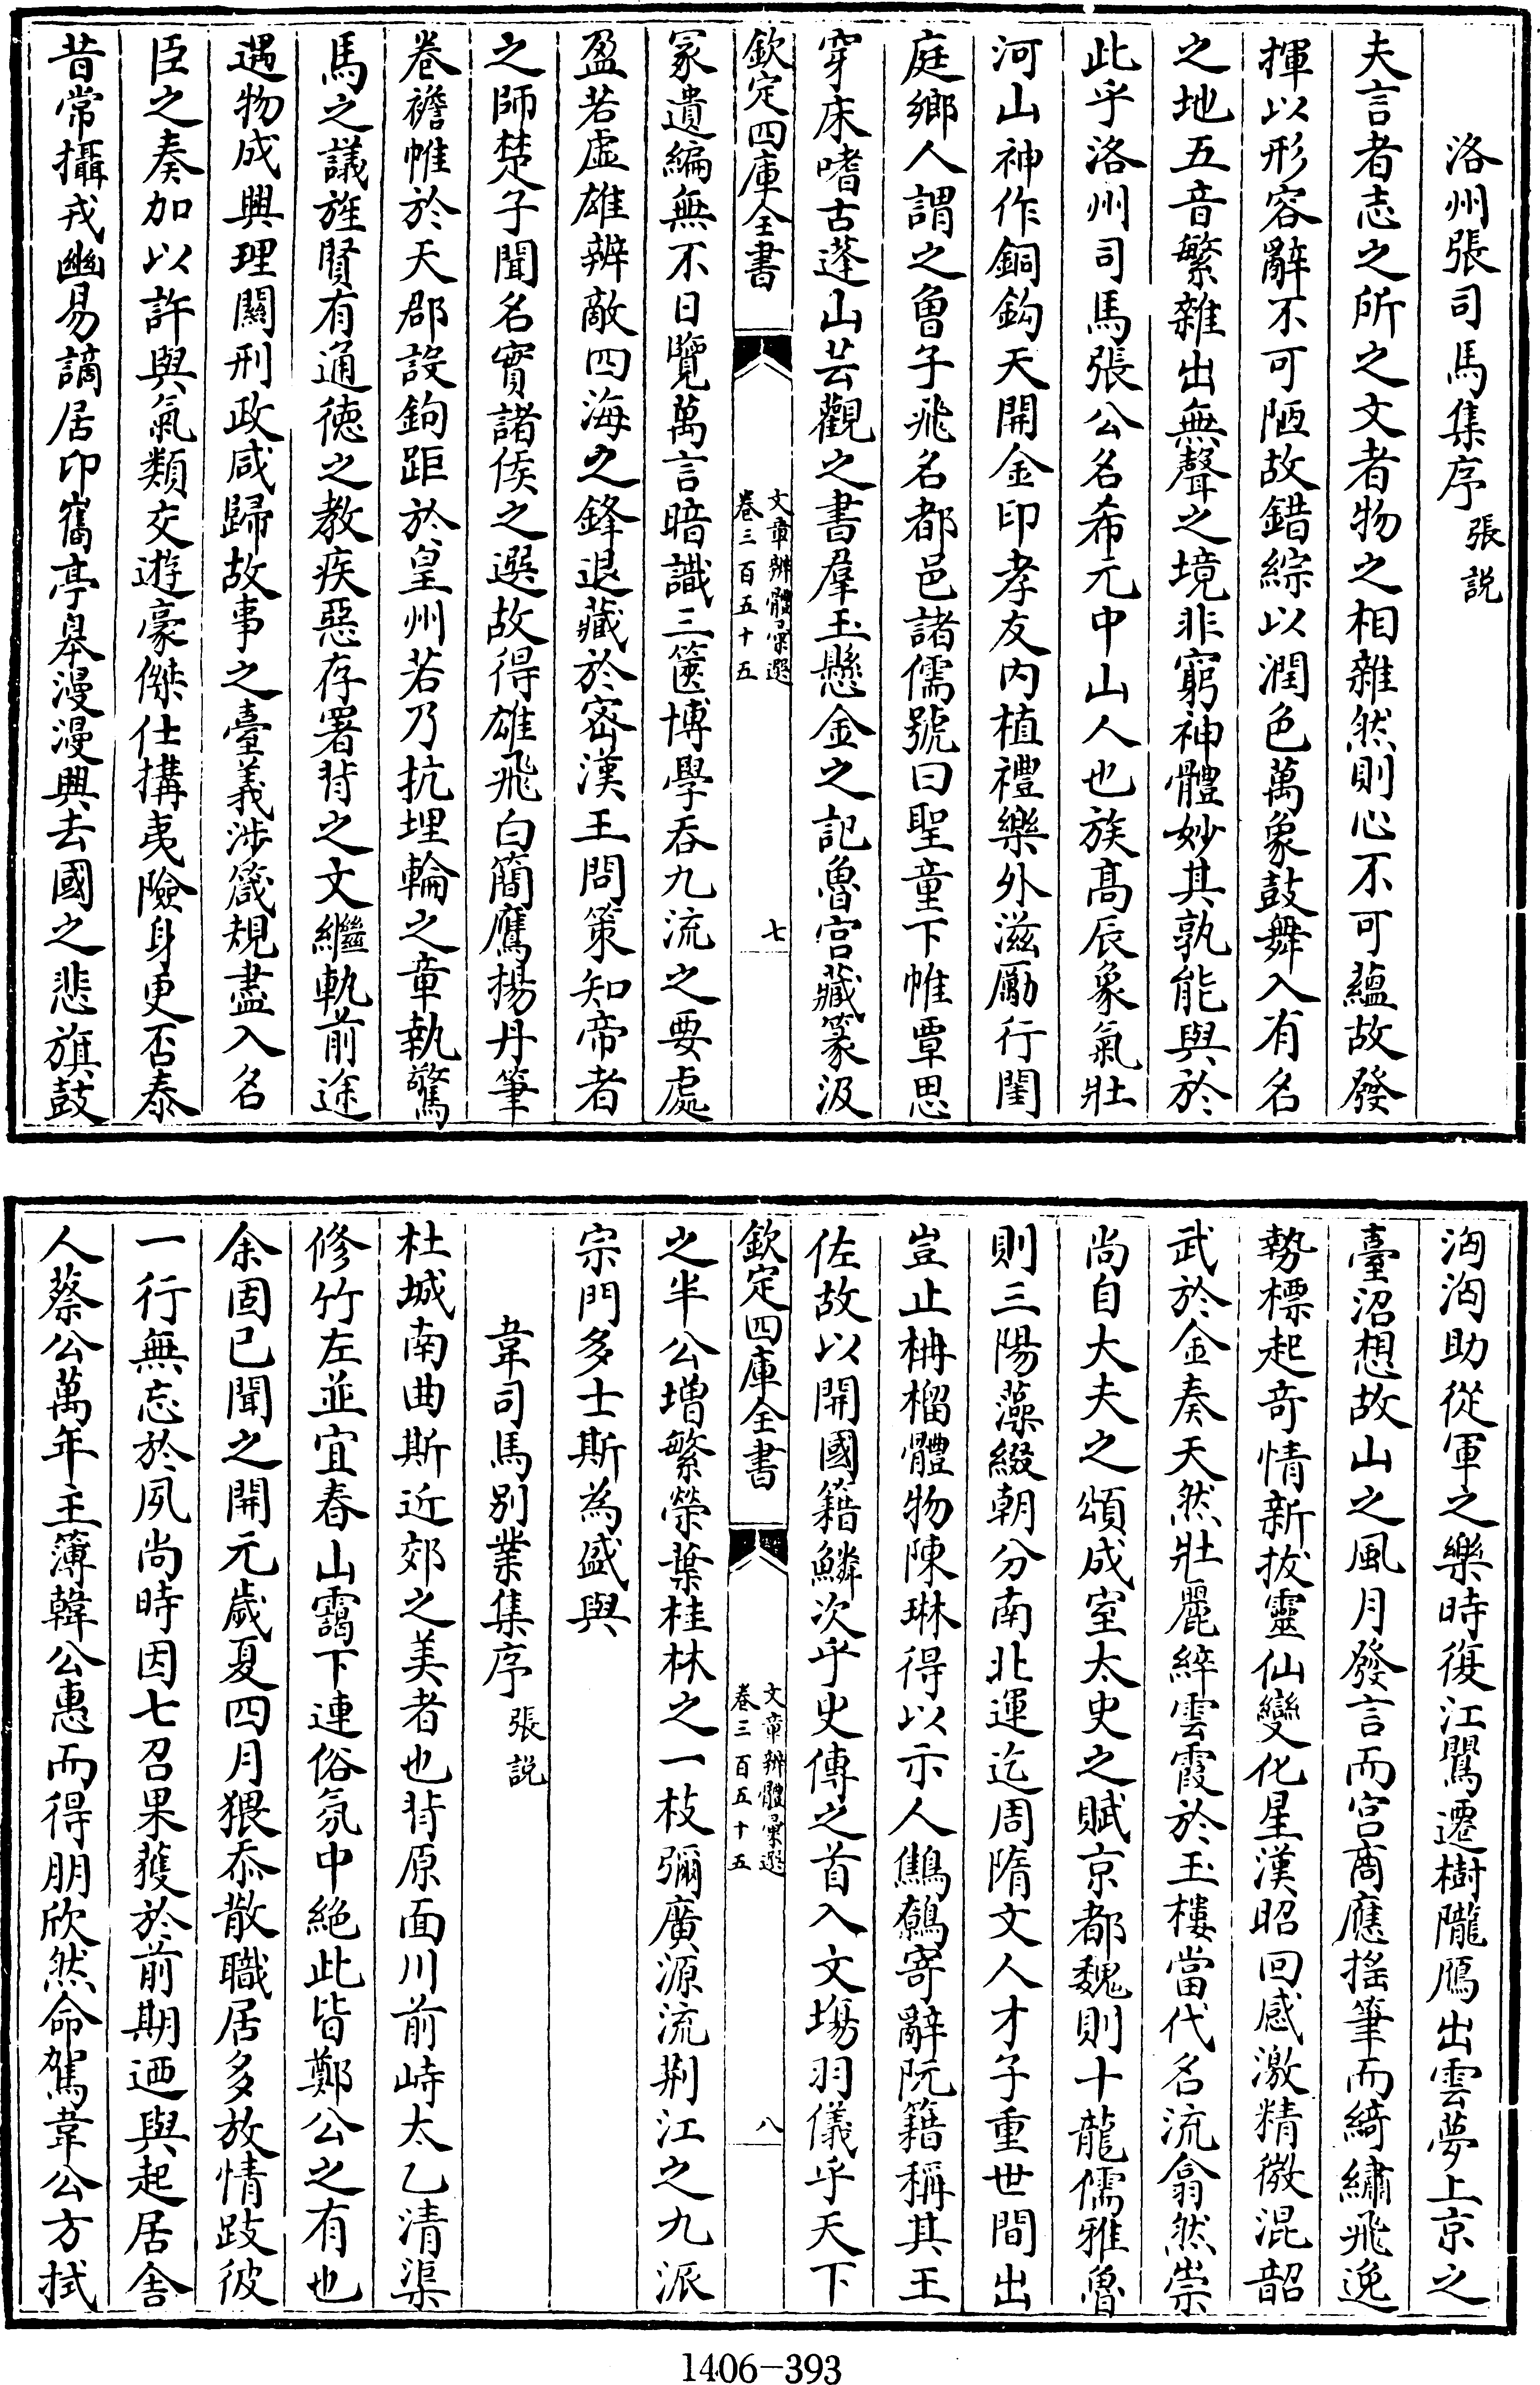 洛州張司馬集序 張說
夫言者志之所之文者物之相雜然則心不可蘊故發
揮以形容辭不可陋故錯綜以潤色萬象鼓舞入有名
之地五音繁雜出無聲之境非窮神體妙其孰能與於
此乎洛州司馬張公名希元中山人也族髙辰象氣壯
河山神作銅鈎天開金印孝友內植禮樂外滋勵行閨
庭鄉人謂之曾子飛名都邑諸儒號曰聖童下帷覃思
穿床嗜古蓬山芸觀之書羣玉懸金之記魯宫藏篆汲
欽定四庫全書 文章辨體彚選 卷三百五十五 七
冢遺編無不日覽萬言暗識三篋博學吞九流之要處
盈若虚雄辨敵四海之鋒退藏於密漢王問策知帝者
之師楚子聞名實諸侯之選故得雄飛白簡鷹揚丹筆
卷襜帷於天郡設鉤距於皇州若乃抗埋輪之章執驚
馬之議旌賢有通徳之教疾惡存署背之文繼軌前途
遇物成興理闗刑政咸歸故事之臺義涉箴規盡入名
臣之奏加以許與氣類交遊豪傑仕搆夷險身更否泰
昔常攝戎幽易謫居卭嶲亭皋漫漫興去國之悲旗鼓
洶洶助從軍之樂時復江鶩遷樹隴鴈出雲夢上京之
臺沼想故山之風月發言而宫商應揺筆而綺繡飛逸
勢標起奇情新拔靈仙變化星漢昭回感激精微混韶
武於金奏天然壯麗綷雲霞於玉樓當代名流翕然崇
尚自大夫之頌成室太史之賦京都魏則十龍儒雅魯
則三陽藻綴朝分南北運迄周隋文人才子重世間出
豈止栟櫚體物陳琳得以示人鷦鷯寄辭阮籍稱其王
佐故以開國籍鱗次乎史傳之首入文塲羽儀乎天下
欽定四庫全書 文章辨體彚選 卷三百五十五 八
之半公增繁榮葉桂林之一枝彌廣源流荆江之九派
宗門多士斯為盛與
韋司馬别業集序 張說
杜城南曲斯近郊之美者也背原面川前峙太乙清渠
修竹左並宜春山靄下連俗氛中絶此皆鄭公之有也
余固已聞之開元歲夏四月猥忝散職居多放情跂彼
一行無忘於夙尚時因七召果獲於前期迺與起居舍
人蔡公萬年主簿韓公惠而得朋欣然命駕韋公方拭
1406-393